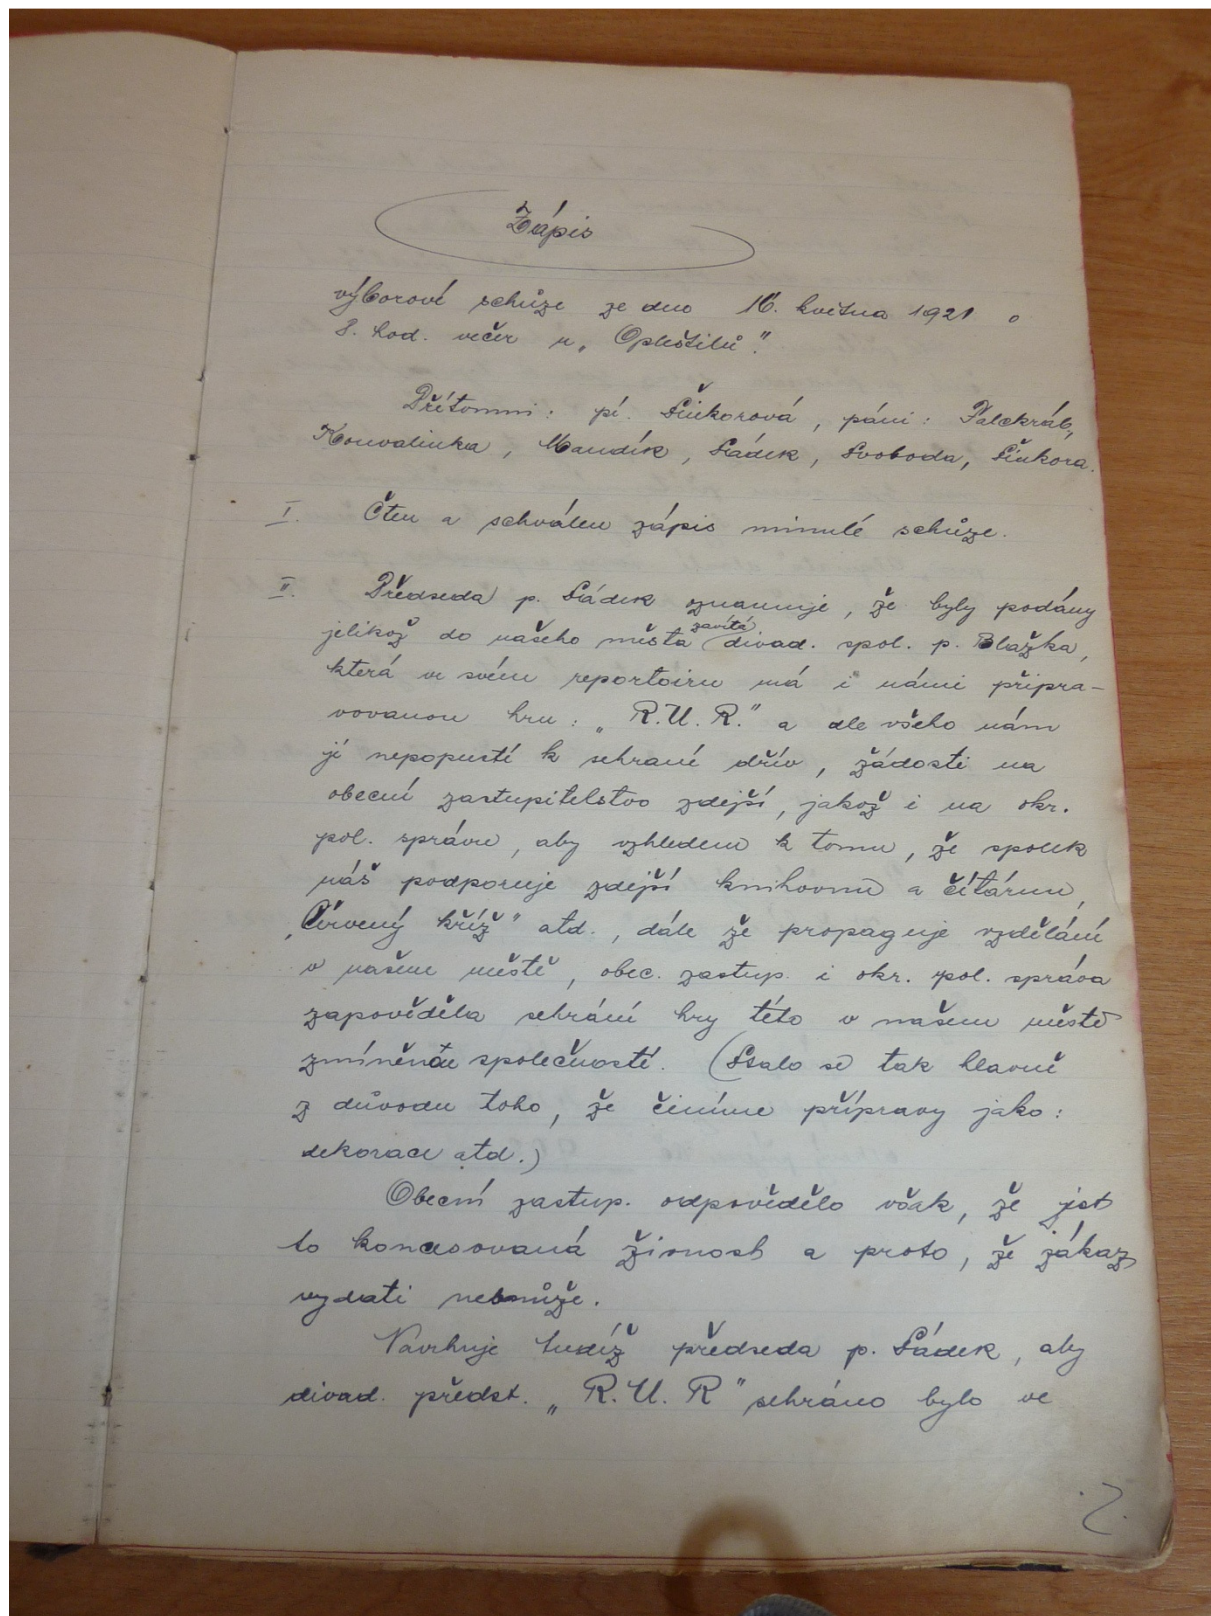 Zápis
výborové schůze ze dne 16. května 1921 o
8. hod. večer u „Opleštilů".
Přítomni: pí. Šinkorová, páni: Falckráb,
Konvalinka, Mandík, Sádek, Svoboda, Šinkora.
I. Čten a schválen zápis minulé schůze.
II. Předseda p. Sádek oznamuje, že byly podány
jelikož do našeho města zavítá divad. spol. p. Blažka,
která ve svém reportoiru má i námi připra-
vovanou hru: „R.U.R." a dle všeho nám
jí nepopustí k sehraní dřív, žádosti na
obecní zastupitelstvo zdejší, jakož i na okr.
pol. správu, aby vzhledem k tomu, že spolek
náš podporuje zdejší knihovnu a čítárnu,
„Červený kříž" atd., dále že propaguje vzdělání
v našem městě, obec. zastup. i okr. pol. správa
zapověděla sehrání hry této v našem městě
zmíněné společnosti. (Stalo se tak hlavně
z důvodu toho, že činíme přípravy jako:
dekorace atd.)
Obecní zastup. odpovědělo však, že jest
to koncesovaná živnost a proto, že zákaz
vydati nemůže.
Navrhuje tudíž předseda p. Sádek, aby
divad. předst. „R.U.R" sehráno bylo ve